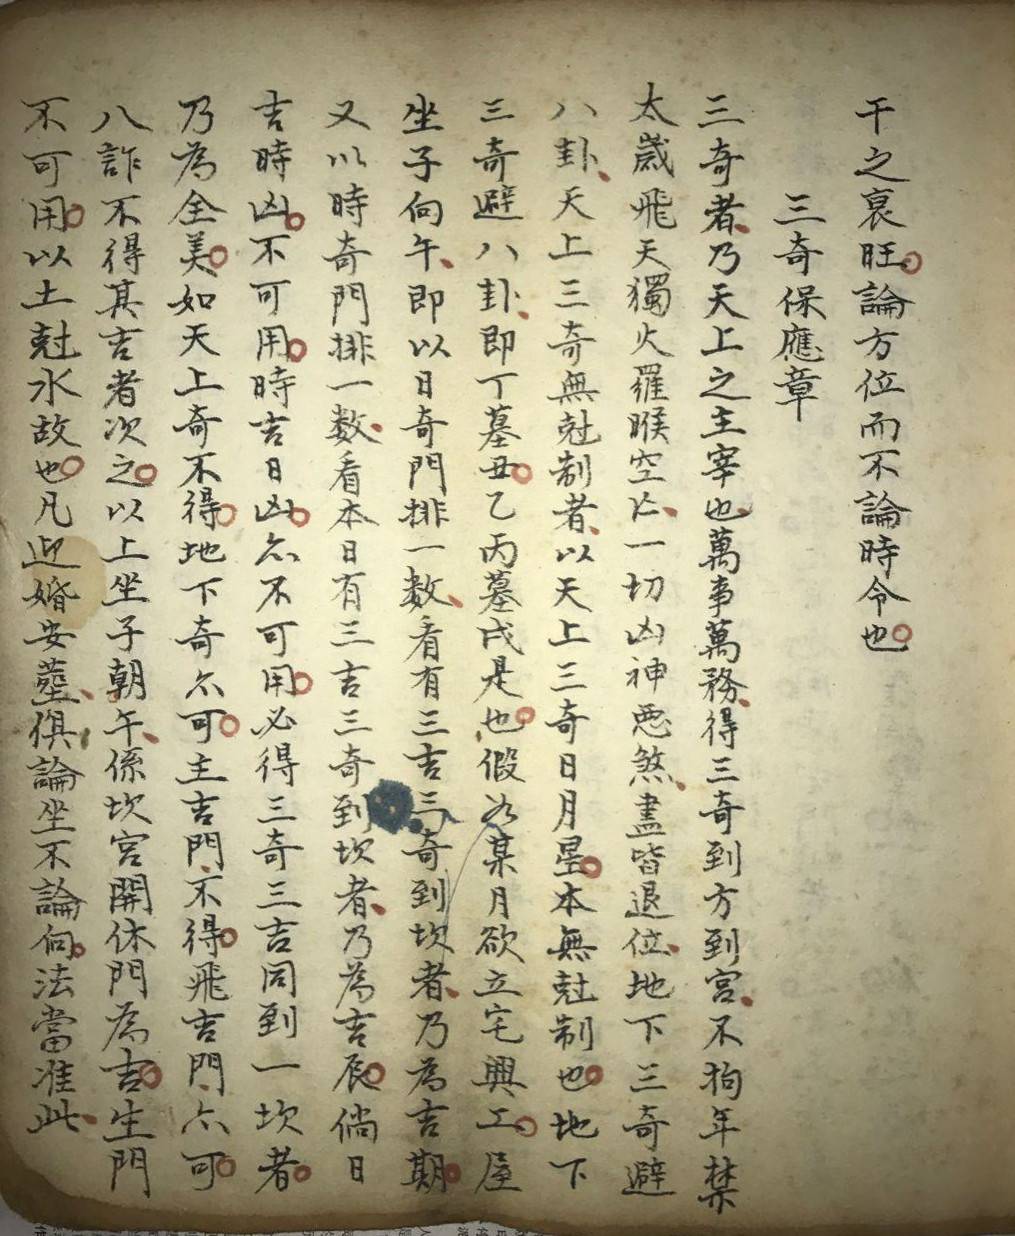 干之衰旺。論方位而不論時令也。
三奇保應章
三奇者、乃天上之主宰也、萬事萬務、得三奇到方到宮、不拘年禁
太歲飛天獨火羅睺空亡、一切凶神惡煞、盡皆退位、地下三奇避
八卦、天上三奇無尅制者、以天上三奇日月星。本無尅制也。地下
三奇避八卦、即丁墓丑。乙丙墓戌是也。假如某月欲立宅興工。屋
坐子向午、即以日奇門排一數、看有三吉三奇到坎者、乃為吉期。
又以時奇門排一數、看本日有三吉三奇到坎者、乃為吉辰。倘日
吉時凶。不可用。時吉日凶。亦不可用。必得三奇三吉同到一坎者。
乃為全美。如天上奇不得。地下奇亦可。主吉門、不得。飛吉門、亦可。
八詐不得其吉者次之。以上坐子朝午、係坎宮開休門為吉。生門
不可用。以土尅水故也。凡迎婚安葬、俱論坐不論向。法當准此、